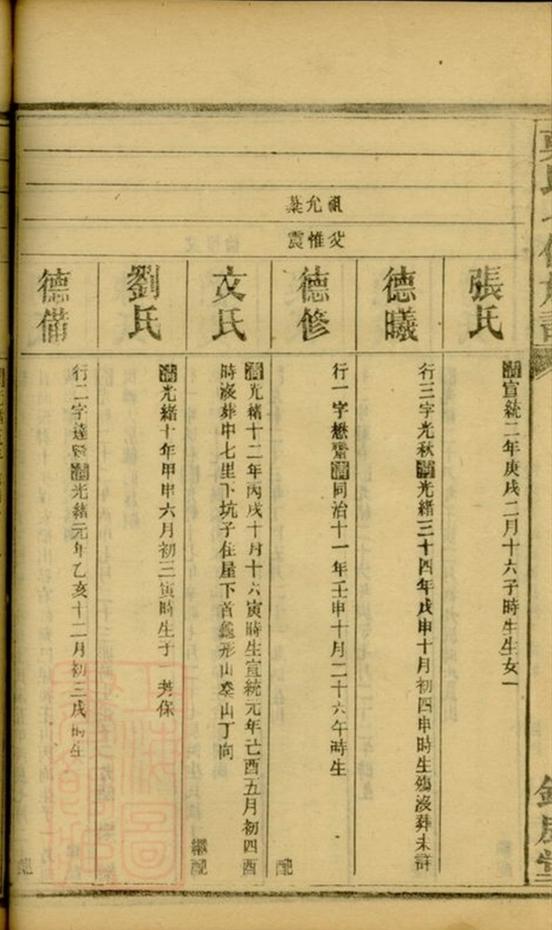 張氏
清宣統二年庚戌二月十六子時生生女一
祖允葉
父惟震
德曦
行三字光秋清光緒三十四年戊申十月初四申時生殤歿葬未詳
德修
行一字懋齋清同治十一年壬申十月二十六午時生
配
文氏
清光緒十二年丙戌十月十六寅時生宣統元年己酉五月初四酉
時歿葬中七里下坑子住屋下首龜形山癸山丁向
繼配
劉氏
清光緒十年甲申六月初三寅時生子一芳保
德備
行二字達賢清光緒元年乙亥十二月初三戌時生
配